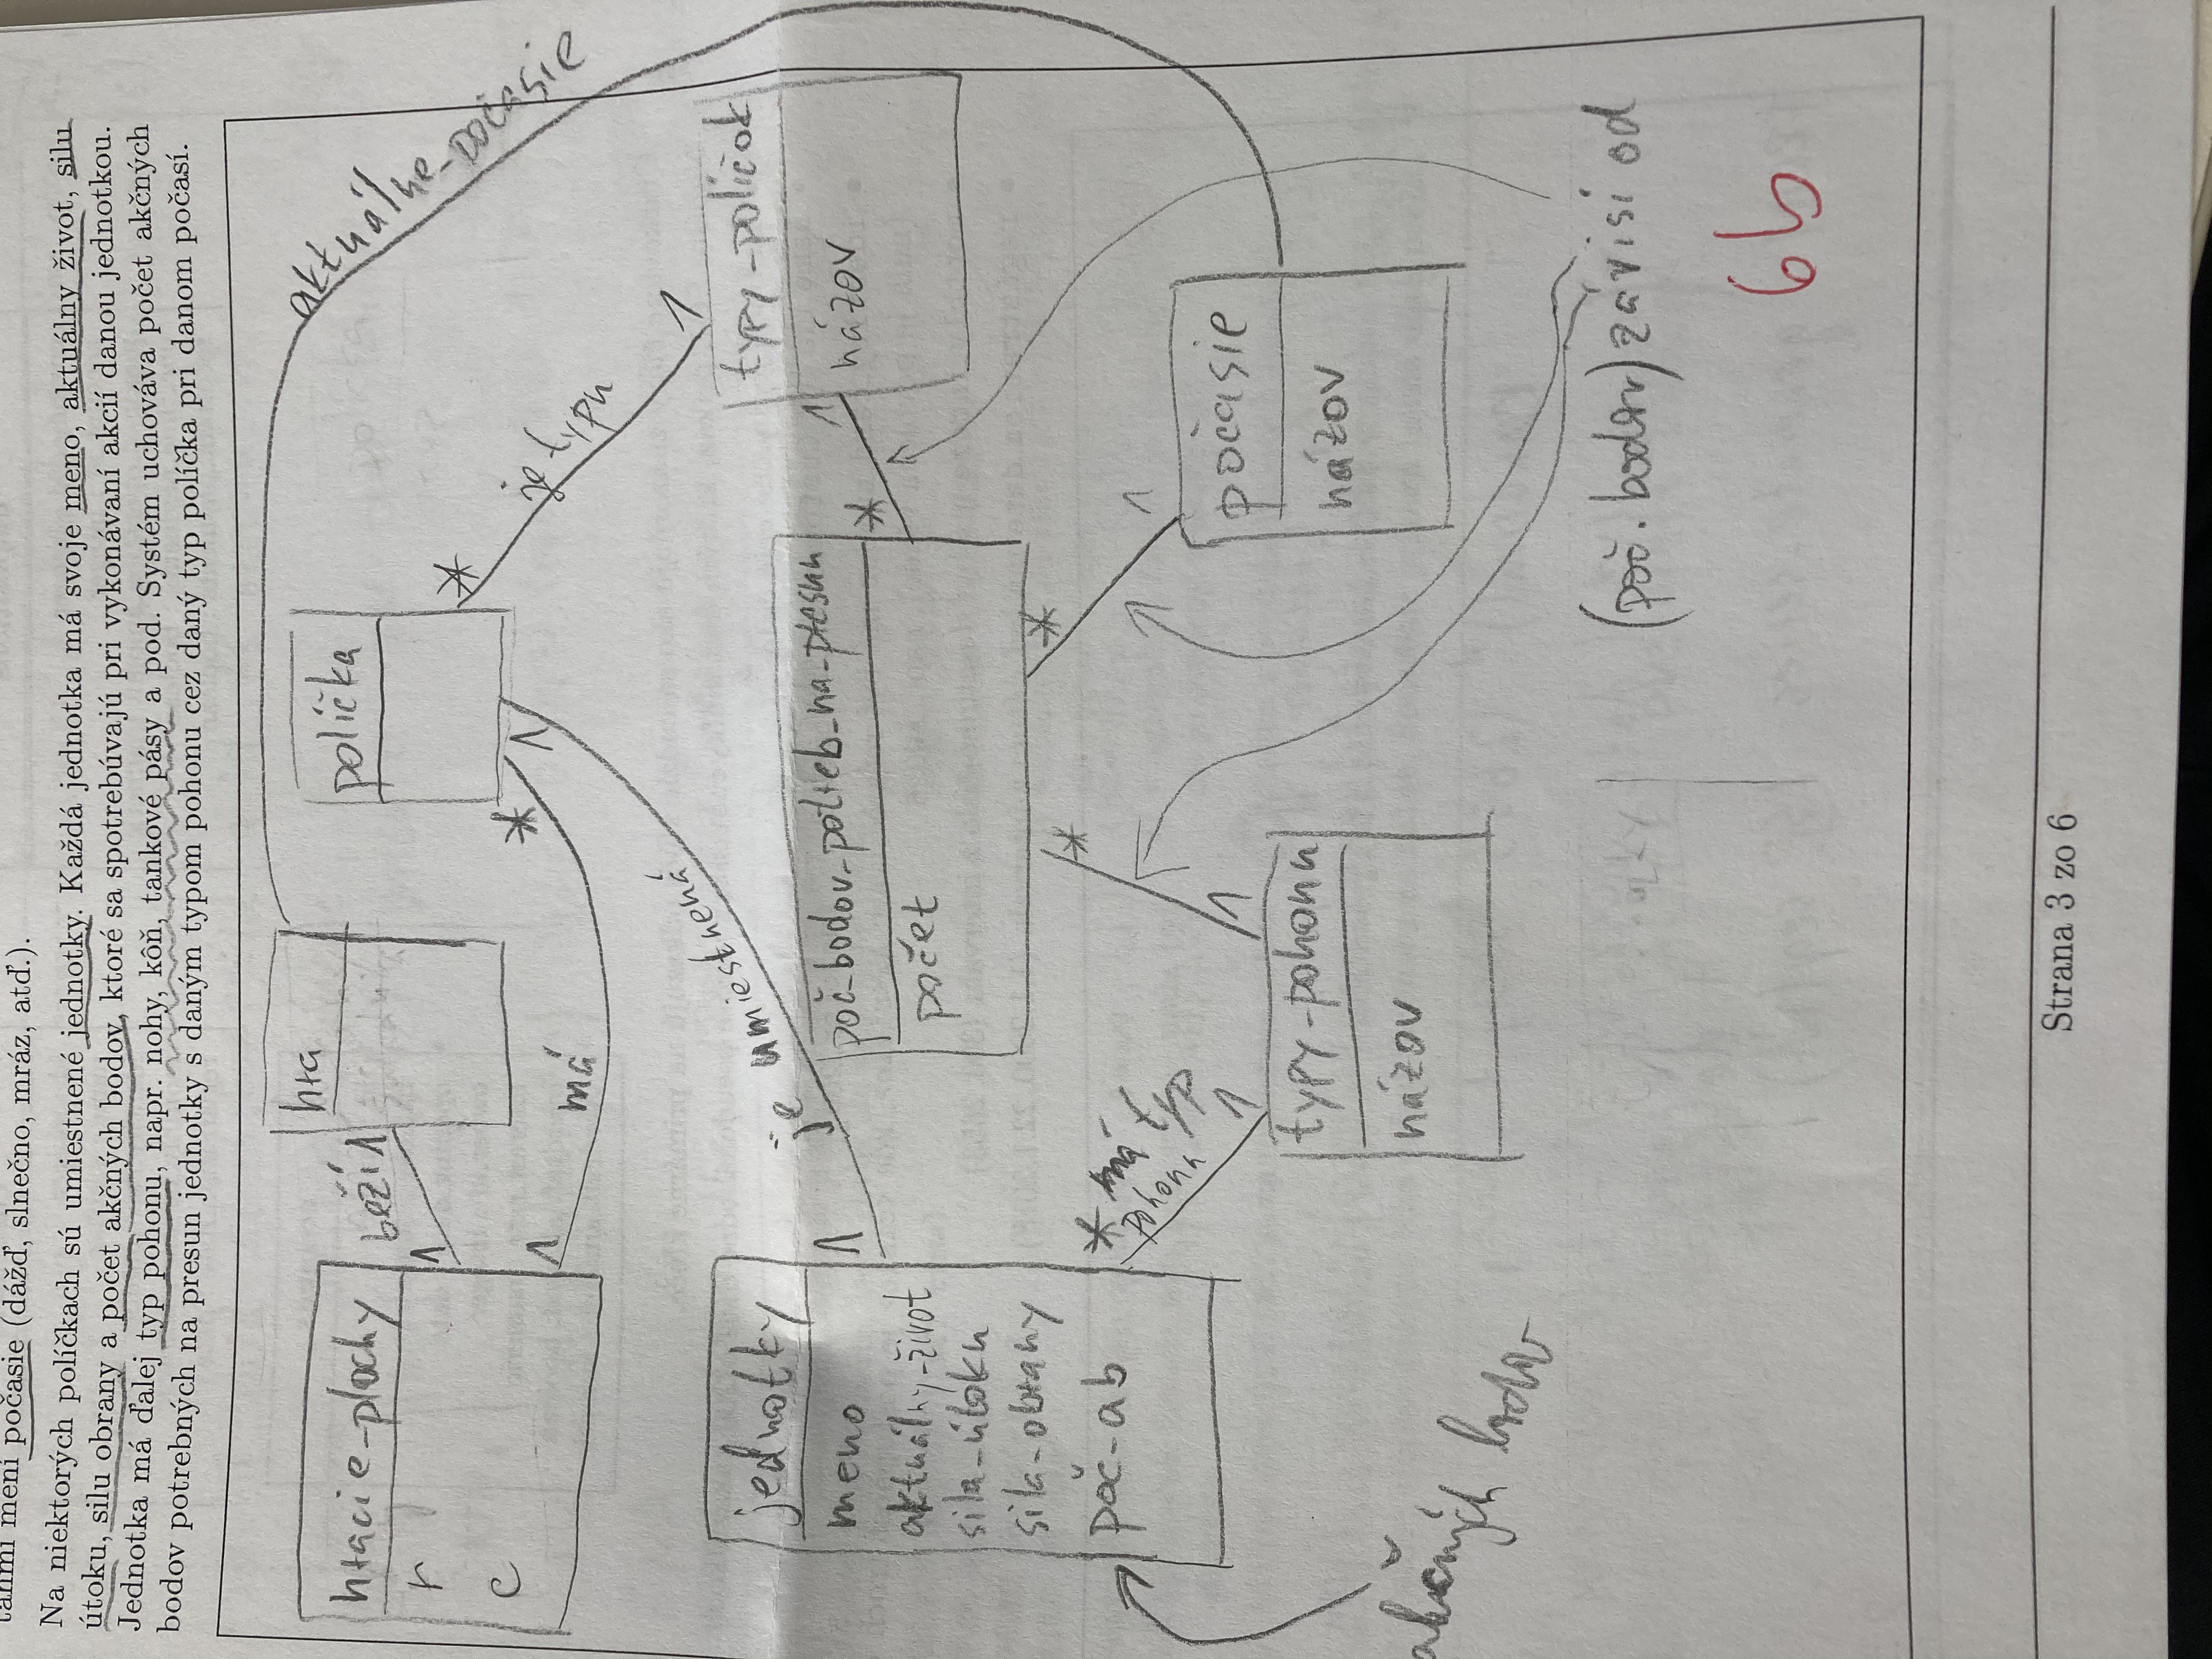 ťahmi mení počasie (dážď, slnečno, mráz, atď.).
Na niektorých políčkach sú umiestnené jednotky. Každá jednotka má svoje meno, aktuálny život, silu
útoku, silu obrany a počet akčných bodov, ktoré sa spotrebúvajú pri vykonávaní akcií danou jednotkou.
Jednotka má ďalej typ pohonu, napr. nohy, kôň, tankové pásy a pod. Systém uchováva počet akčných
bodov potrebných na presun jednotky s daným typom pohonu cez daný typ políčka pri danom počasí.
hracie-plochy
r
c
beží
1
1
hra
políčka
aktuálne-počasie
1
má
*
1
*
je typu
1
je umiestnená
1
jednotky
meno
aktuálny-život
sila-útoku
sila-obrany
poč-ab
poč-bodov-potreb-na-presun
počet
typy-políčok
názov
*
1
*
*
* má typ
pohonu
1
1
1
typy-pohonu
názov
počasie
názov
akčných bodov
(poč. bodov) závisí od
6b
Strana 3 zo 6